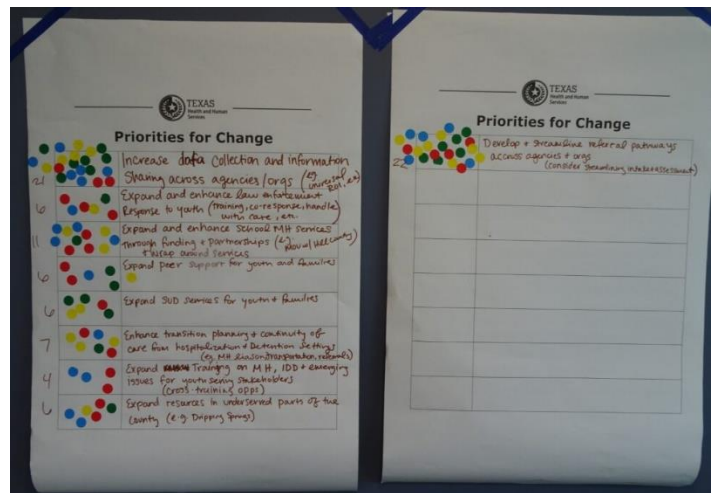 TEXAS
Health and Human
Services
Priorities for Change
21
Increase data Collection and information
Sharing across agencies/orgs (eg
universal
ROI, etc)
6
Expand and enhance law enforcement
Response to youth (Training, co-response, handle
with care, etc.
11
Expand and enhance School MH Services
through funding + partnerships
+ wrap around services
6
Expand peer support for youth and families
6
Expand SUD services for youth + families
7
Enhance transition planning + continuity of
care from hospitalization + Detention Settings
(eg. MH liaison/transportation, referrals)
4
Expand Training on MH, IDD + emerging
issues for youth serving stakeholders
(cross-training opps)
6
Expand resources in underserved parts of the
County (e.g. Dripping Springs)
TEXAS
Health and Human
Services
Priorities for Change
22
Develop + streamline referral pathways
accross agencies + orgs
(consider streamlining intake + assessment)